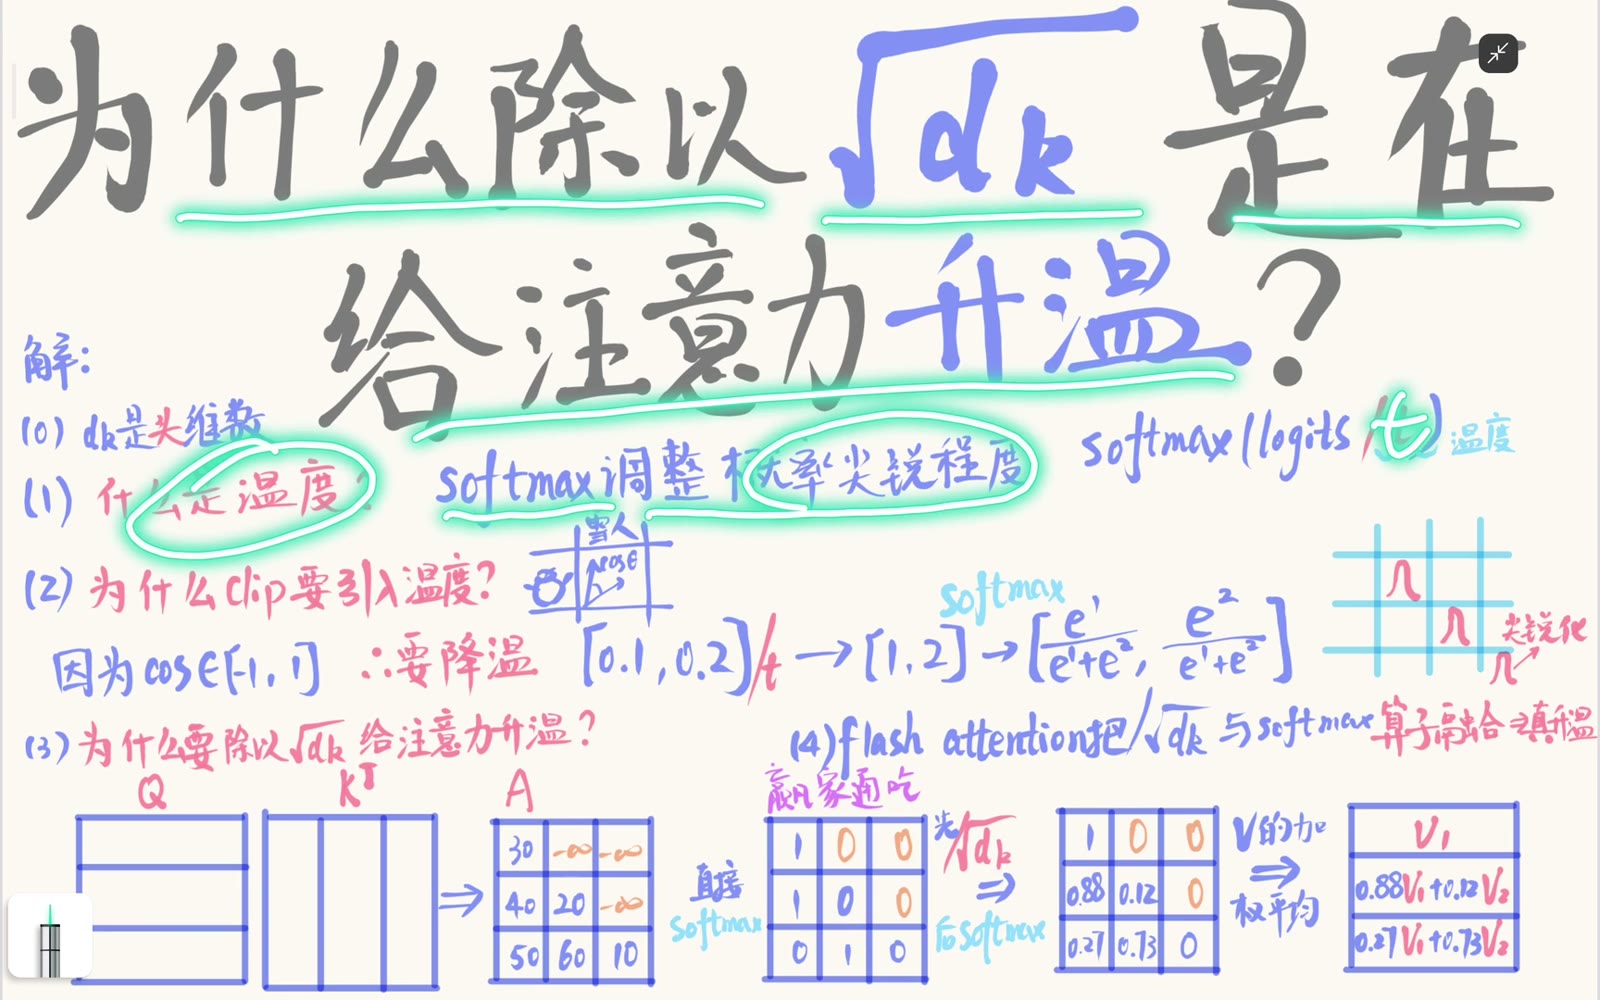 为什么除以√dk 是在
给注意力升温?
解:
(0) dk是头维数
(1) 什么是温度? softmax调整概率尖锐程度 softmax(logits/t) 温度
雪人
cosθ
(2) 为什么Clip要引入温度?
因为cos∈[-1,1] ∴要降温 [0.1,0.2]/t → [1,2] → [e¹/(e¹+e²), e²/(e¹+e²)]
softmax
尖锐化
(3) 为什么要除以√dk 给注意力升温?
(4) flash attention把/√dk 与softmax算子融合
Q Kᵀ A
30 -∞ -∞
40 20 -∞
50 60 10
直接
softmax
赢家通吃
1 0 0
1 0 0
0 1 0
先/√dk
⇒
后softmax
1 0 0
0.88 0.12 0
0.27 0.73 0
V的加
⇒
权平均
V₁
0.88V₁+0.12V₂
0.27V₁+0.73V₂